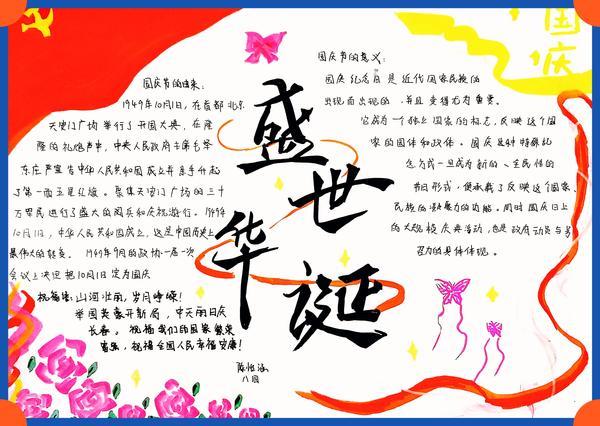 国庆
盛世华诞
国庆节的由来:
1949年10月1日,在首都北京
天安门广场举行了开国大典,在隆
隆的礼炮声中,中央人民政府主席毛泽
东庄严宣告中华人民共和国成立并亲手升起
了第一面五星红旗。聚集天安门广场的三十
万军民进行了盛大的阅兵和庆祝游行。1949年
10月1日,中华人民共和国成立,这是中国历史上
最伟大的转变。1949年9月的政协一届一次
会议上决定把10月1日定为国庆
祝福语:山河壮丽,岁月峥嵘!
举国英豪开新局,中天丽日庆
长春。祝福我们的国家繁荣
富强,祝福全国人民幸福安康!
八月
国庆节的意义:
国庆纪念日是近代国家民族的
出现而出现的,并且变得尤为重要。
它成为一个独立国家的标志,反映这个国
家的国体和政体。国庆这种特殊纪
念方式一旦成为新的、全民性的
节日形式,便承载了反映这个国家、
民族的凝聚力的功能。同时国庆日上
的大规模庆典活动,也是政府动员与号
召力的具体体现。